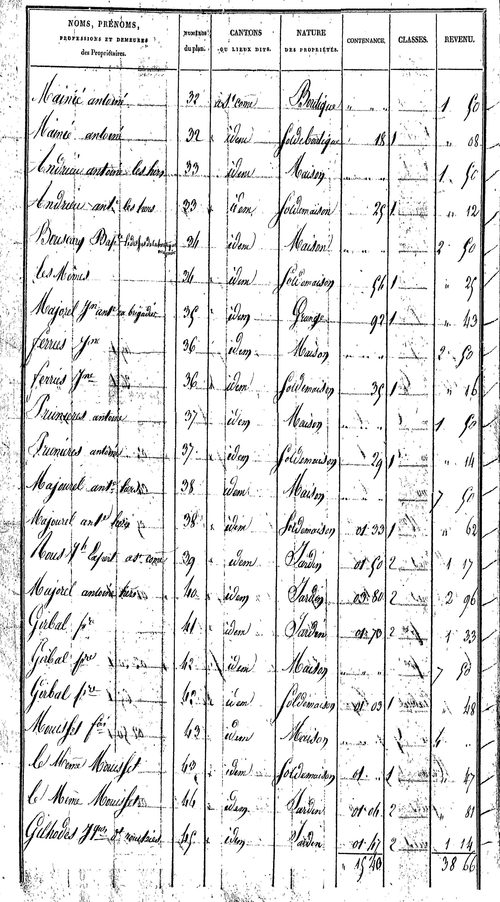 NOMS, PRÉNOMS, PROFESSIONS ET DEMEURES des Propriétaires. NUMÉROS du plan. CANTONS OU LIEUX DITS. NATURE DES PROPRIÉTÉS. CONTENANCE. CLASSES. REVENU.
Mainié antoine 32 a St come Boutique " " " 1 50
Mainié antoine 32 idem Soldeboutique 18 1 " 08
Andrieu antoine les hers 33 idem Maison " " " 1 50
Andrieu ant.e les hers 33 idem Soldemaison 25 1 " 12
34 idem Maison " " " 2 50
les Mêmes 34 idem Soldemaison 54 1 " 25
Majorel Jn ant.e en brigadier 35 idem Grange 92 1 " 43
ferrus Jne 36 idem Maison " " " 2 50
ferrus Jne 36 idem Soldemaison 35 1 " 16
Prunieres antoine 37 idem Maison " " " 1 50
Prunieres antoine 37 idem Soldemaison 29 1 " 14
Majourel ant.e 38 idem Maison " " " 7 50
Majourel ant.e 38 idem Soldemaison 01 33 1 " 62
39 idem Jardin 01 50 2 1 17
Majorel antoine 40 idem Jardin 03 80 2 2 96
Girbal pre 41 idem Jardin 01 70 2 1 33
Girbal pre 42 idem Maison " " " 7 50
Girbal pre 42 idem Soldemaison 01 03 1 " 48
Mousset 43 idem Maison " " " 4 "
le Même Mousset 43 idem Soldemaison 01 " 1 " 47
le Même Mousset 44 idem Jardin 01 04 2 81
Galhodes 45 idem Jardin 01 47 2 1 14
" 15 40 38 66